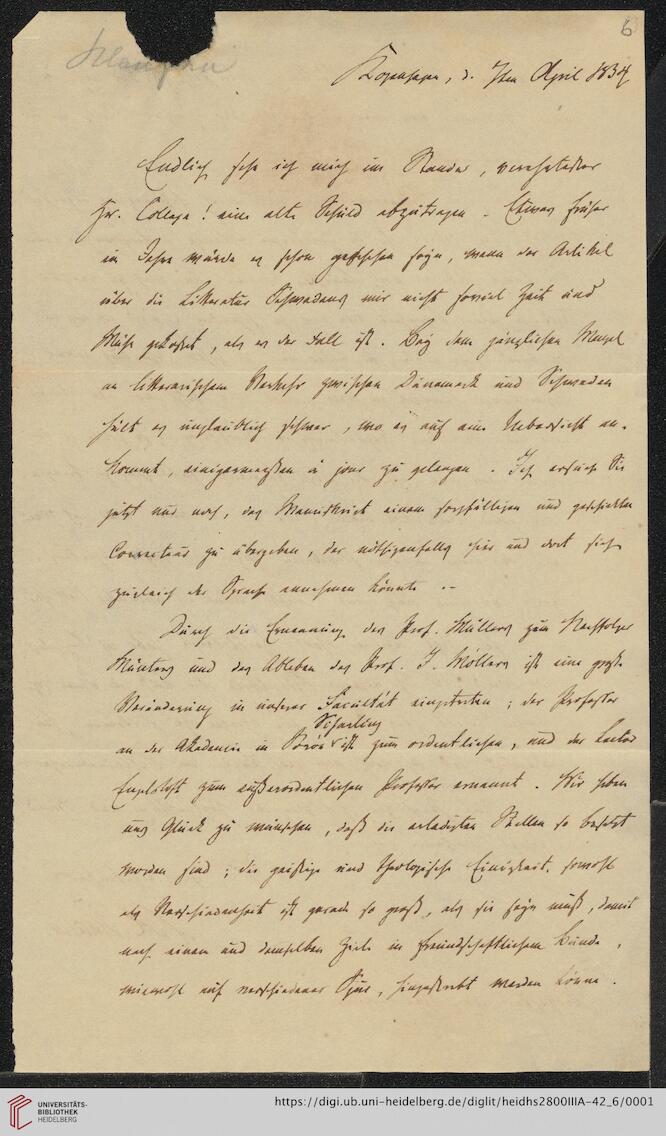 6
Clausen
Kopenhagen, d. 7ten April 1834
Endlich sehe ich mich im Stande, verehrtester
Hr. College! eine alte Schuld abzutragen. Etwas früher
im Jahre würde es schon geschehen seyn, wenn der Artikel
über die Litteratur Schwedens mir nicht soviel Zeit und
Mühe gekostet, als es der Fall ist. Bey dem gänzlichen Mangel
an litterarischem Verkehr zwischen Dänemark und Schweden
hält es unglaublich schwer, wo es auf eine Uebersicht an-
kommt, einigermassen à jour zu gelangen. Ich ersuche Sie
jetzt nur noch, das Manuskript einem sorgfältigen und geschickten
Correcteur zu übergeben, der nöthigenfalls hier und dort sich
zugleich der Sprache annehmen könnte. --
Durch die Ernennung des Prof. Müllers zum Nachfolger
Münters und das Ableben des Prof. J. Möllers ist eine große
Veränderung in unserer Facultät eingetreten; der Professor
Scharling
an der Akademie in Soröe ist zum ordentlichen, und der Lector
Engelstoft zum außerordentlichen Professor ernannt. Wir haben
uns Glück zu wünschen, daß die erledigten Stellen so besetzt
worden sind; die geistige und theologische Einigkeit, sowohl
als Verschiedenheit ist gerade so groß, als sie seyn muß, damit
nach einem und demselben Ziele in freundschaftlichem Bunde,
wiewohl auf verschiedener Spur, hingestrebt werden könne.
UNIVERSITÄTS-
BIBLIOTHEK
HEIDELBERG
https://digi.ub.uni-heidelberg.de/diglit/heidhs2800IIIA-42_6/0001